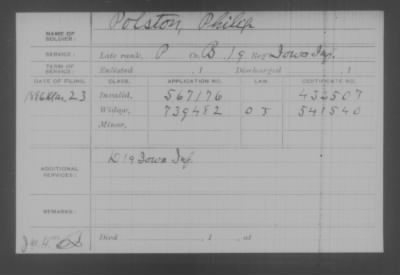 NAME OF SOLDIER: Polston, Philip
SERVICE: Late rank, P Co. B, 19 Reg't Iowa Inf.
TERM OF SERVICE: Enlisted , 1 Discharged , 1
DATE OF FILING. CLASS. APPLICATION NO. LAW. CERTIFICATE NO.
Mar. 23 Invalid, 567176 432507
Widow, 739482 541540
Minor,
ADDITIONAL SERVICES: K 19 Iowa Inf.
REMARKS:
Died , 1 , at